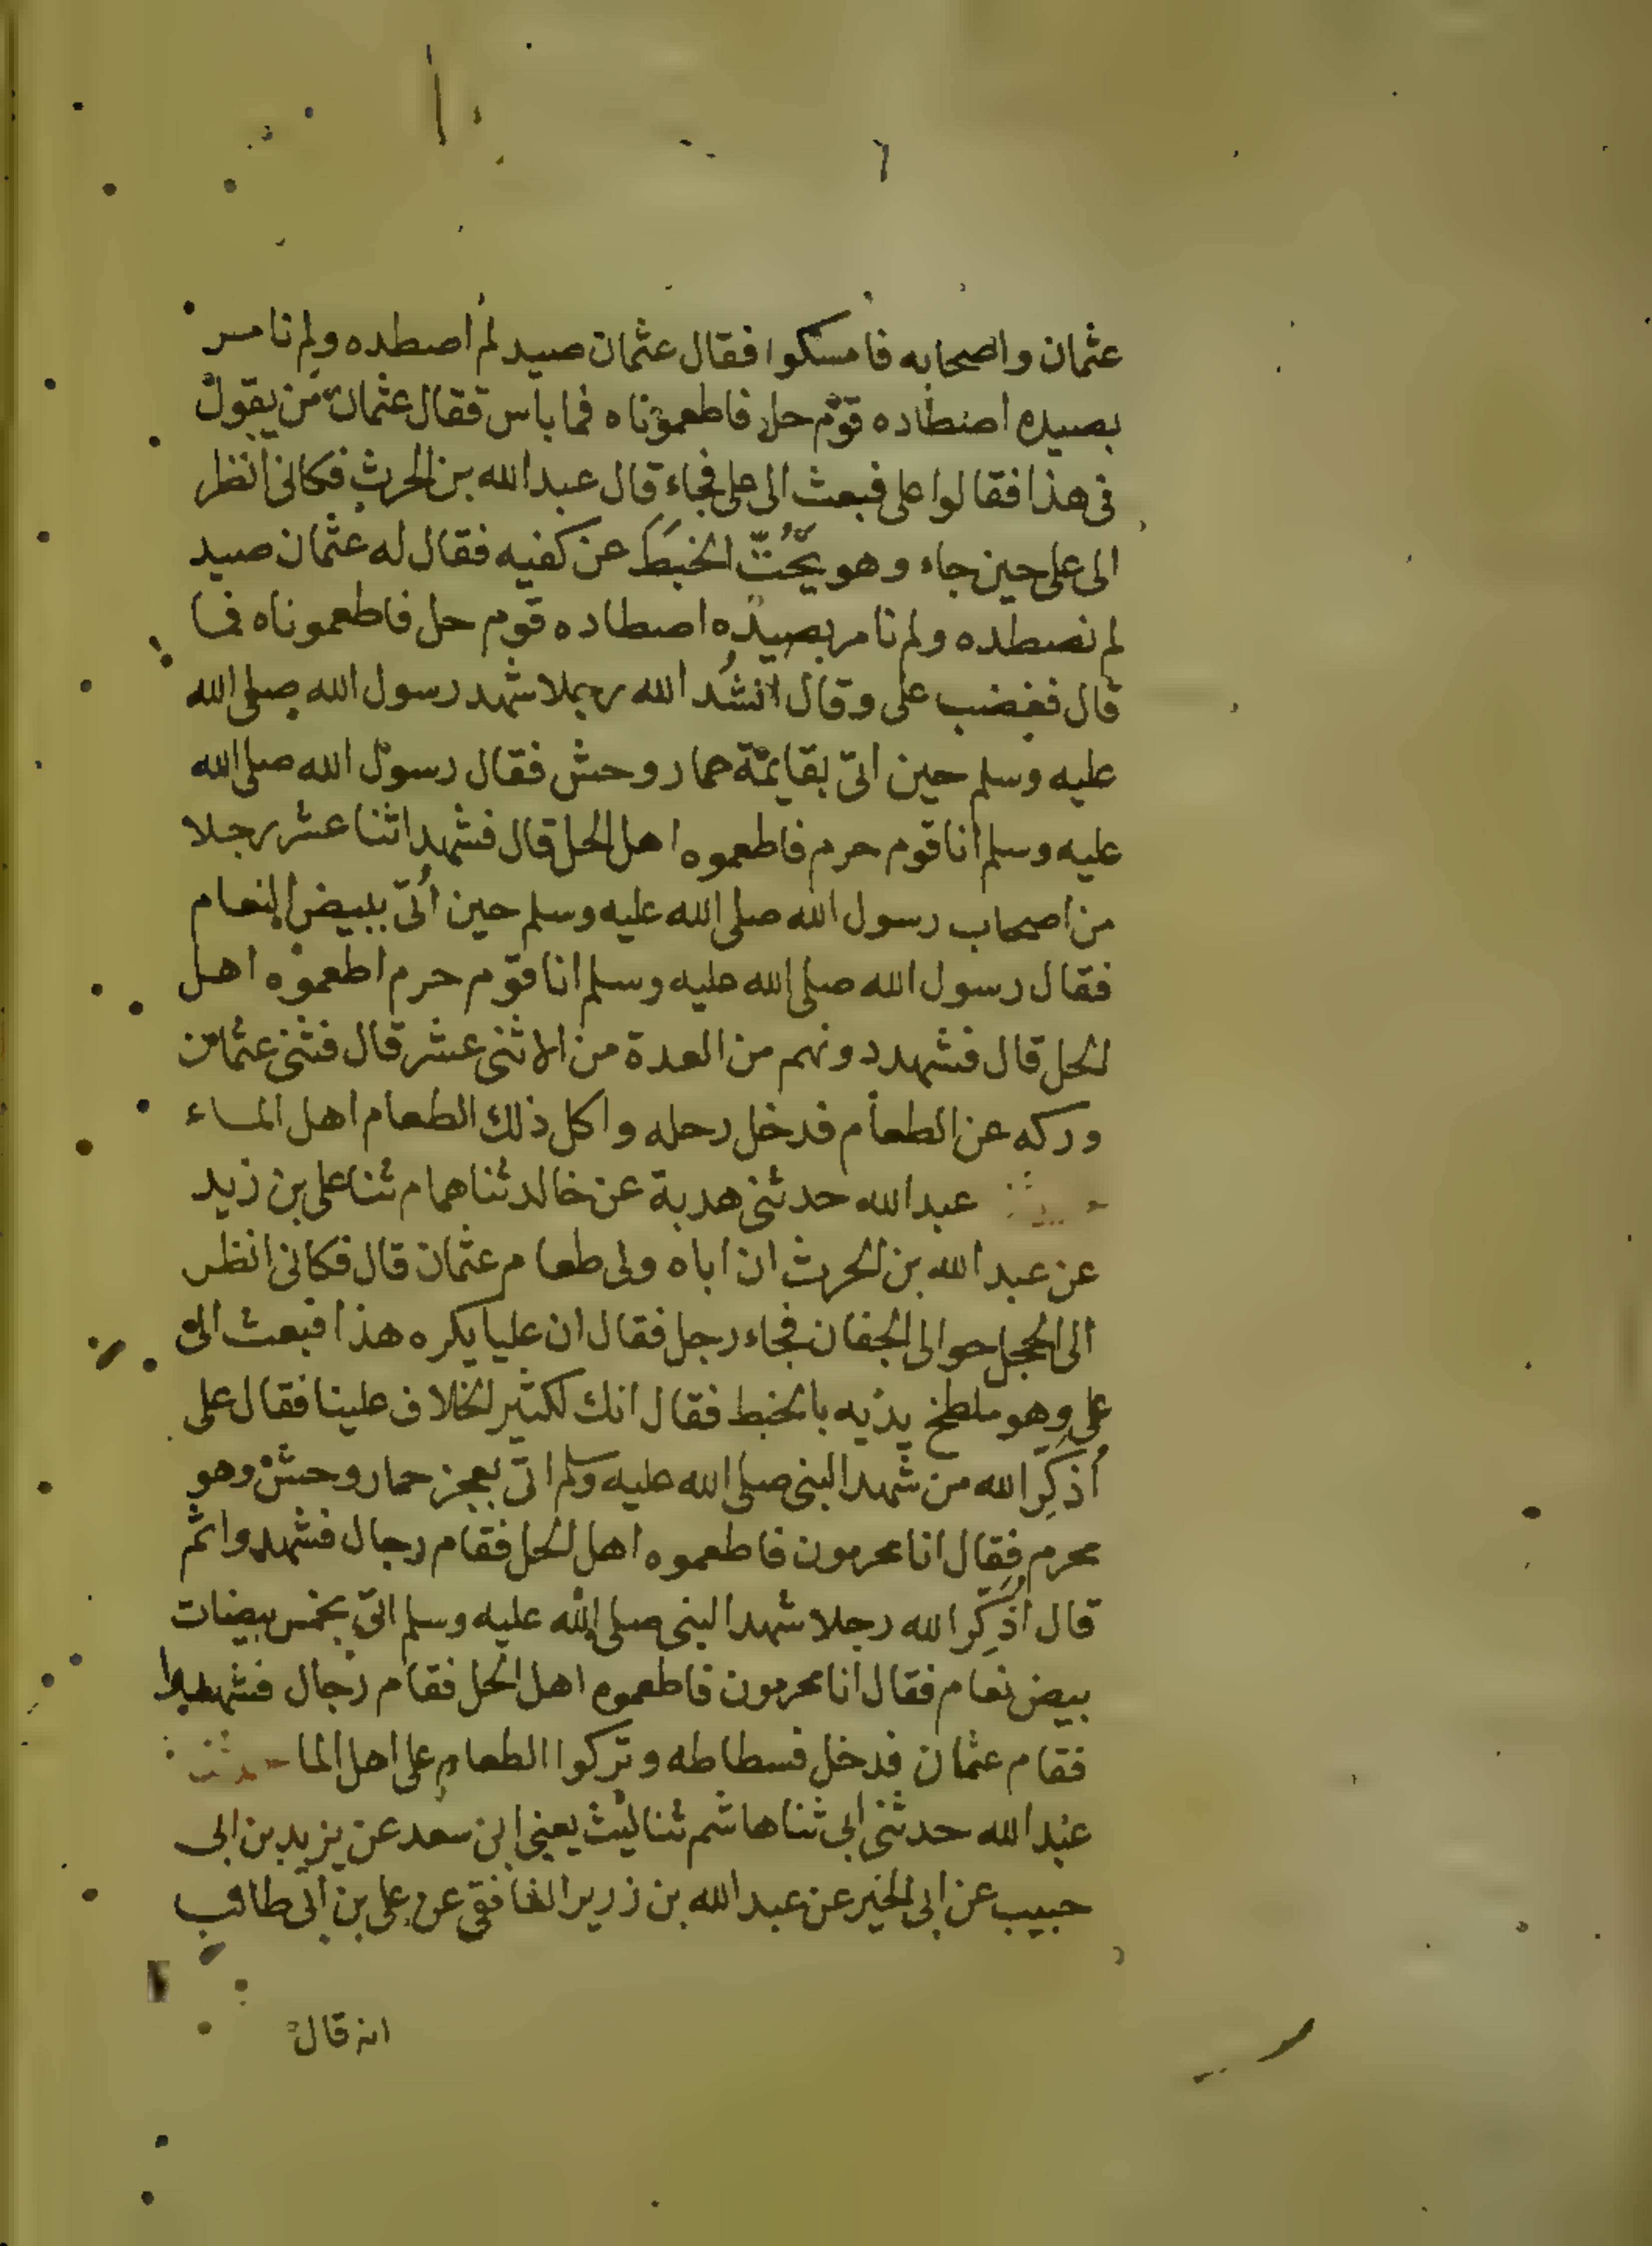 عثمان واصحابه فامسكوا فقال عثمان صيد لم اصطده ولم نامر
بصيده اصطاده قوم حل فاطعموناه فما باس فقال عثمان من يقول
في هذا فقالوا على فبعث الى على فجاء قال عبدالله بن الحرث فكانى انظر
الى على حين جاء وهو يَحُتّ الخبَطَ عن كفيه فقال له عثمان صيد
لم نصطده ولم نامر بصيده اصطاده قوم حل فاطعموناه فما
قال فغضب على وقال انشُد الله رجلا شهد رسول الله صلى الله
عليه وسلم حين اتىّ بقايمة حمار وحش فقال رسول الله صلى الله
عليه وسلم انا قوم حرم فاطعموه اهل الحل قال فشهد اثنا عشر رجلا
من اصحاب رسول الله صلى الله عليه وسلم حين اُتىّ ببيض النعام
فقال رسول الله صلى الله عليه وسلم انا قوم حرم اطعموه اهل
الحل قال فشهد دونهم من العدة من الاثنى عشر قال فثنى عثمان
وركه عن الطعام فدخل رحله واكل ذلك الطعام اهل الماء
عبدالله حدثنى هدبة عن خالد ثنا همام ثنا على بن زيد
عن عبد الله بن الحرث ان اباه ولى طعام عثمان قال فكانى انظر
الى الحجل حوالى الجفان فجاء رجل فقال ان عليا يكره هذا فبعث الى
على وهو ملطخ يديه بالخبط فقال انك لكثير الخلاف علينا فقال على
اُذكِّر الله من شهد النبى صلى الله عليه وسلم اتىّ بعجز حمار وحش وهو
محرم فقال انا محرمون فاطعموه اهل الحل فقام رجال فشهدوا ثم
قال اُذَكِّر الله رجلا شهد النبى صلى الله عليه وسلم اتىّ بخمس بيضات
بيض نعام فقال انا محرمون فاطعموه اهل الحل فقام رجال فشهدوا
فقام عثمان فدخل فسطاطه وتركوا الطعام على اهل الما حدثنا
عبد الله حدثنى ابى ثنا هاشم ثنا ليث يعنى ابن سعد عن يزيد بن ابى
حبيب عن ابى الخير عن عبد الله بن زرير الغافقى عن على بن ابى طالب
انه قال